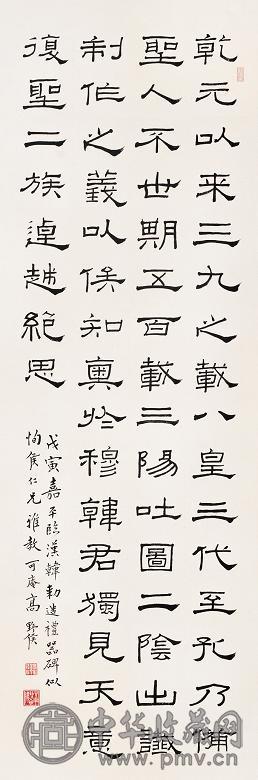 乾元以来三九之載八皇三代至孔乃備
聖人不世期五百載三陽吐圖二陰出讖
制作之義以俟知奧於穆韓君獨見天意
復聖二族逴越絕思
戊寅嘉平臨漢韓勅造禮器碑似
恂侯仁兄雅教可庵高野侯
中华收藏网
www.pmv.cn